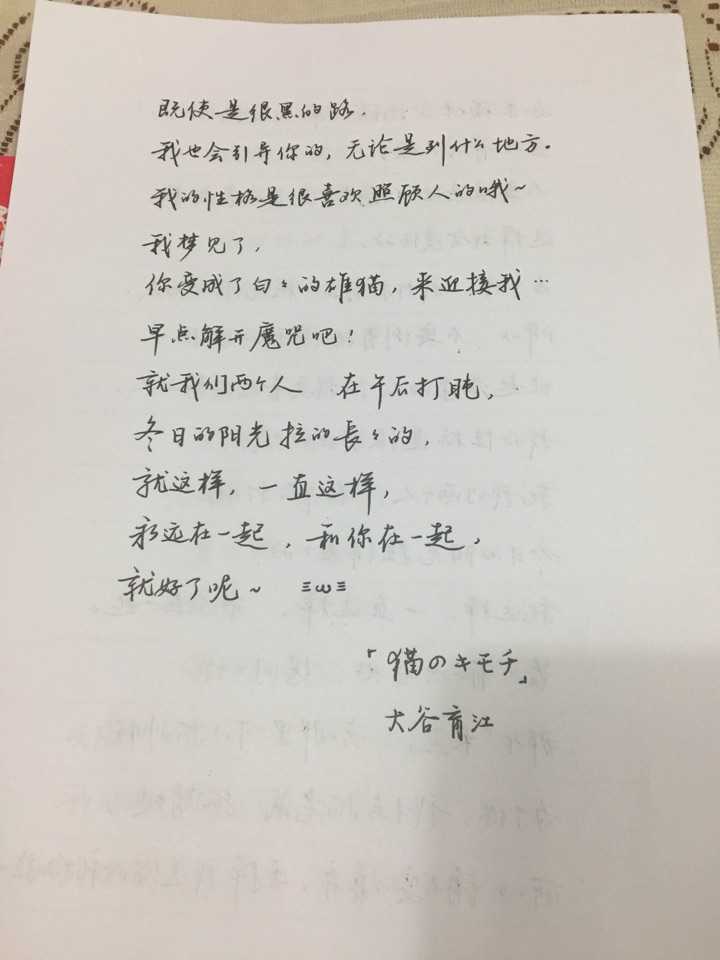 既使是很黑的路.
我也会引导你的，无论是到什么地方。
我的性格是很喜欢照顾人的哦~
我梦见了，
你变成了白々的雄猫，来迎接我…
早点解开魔咒吧！
就我们两个人 在午后打盹，
冬日的阳光拉的長々的，
就这样，一直这样，
永远在一起，和你在一起，
就好了呢~ ≡ω≡
「猫のキモチ」
大谷育江